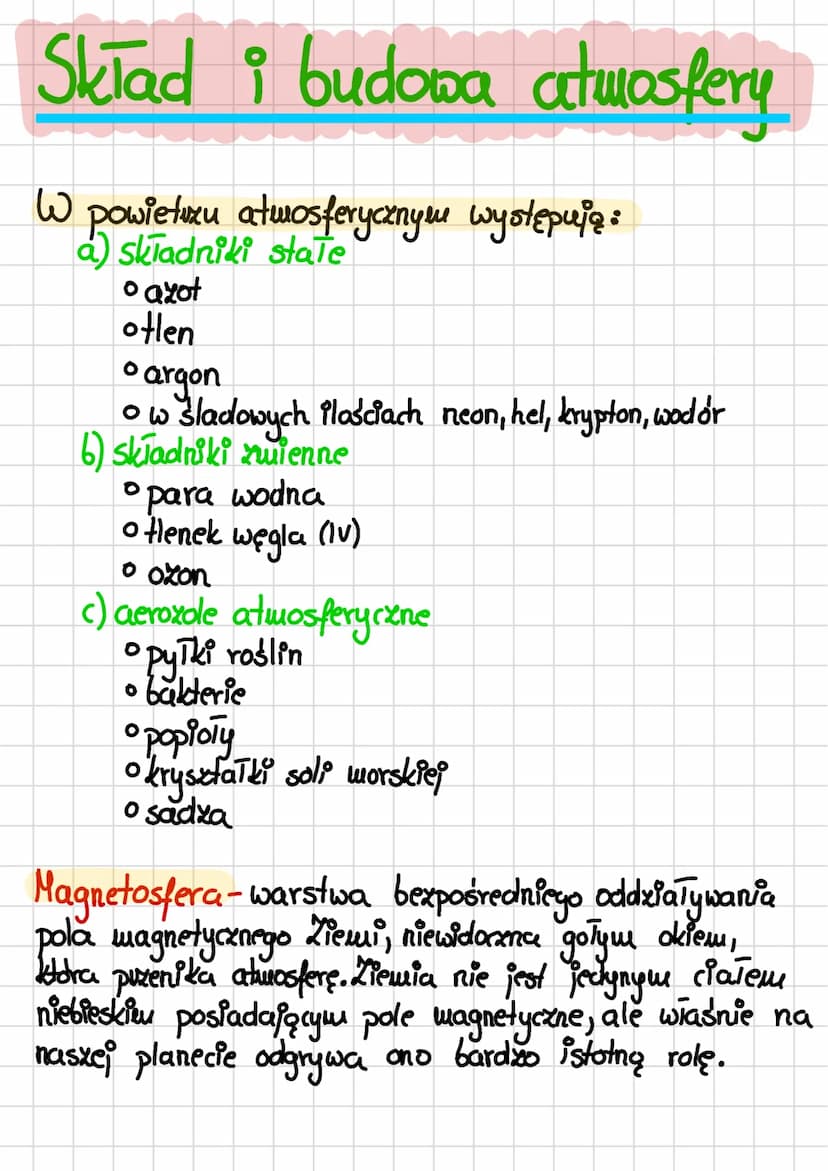 Skład i budowa atmosfery
W powietrzu atmosferycznym występują:
a) składniki stałe
o azot
o tlen
o argon
o w śladowych ilościach neon, hel, krypton, wodór
b) składniki zmienne
o para wodna
o tlenek węgla (IV)
o ozon
c) aerozole atmosferyczne
o pyłki roślin
o bakterie
o popioły
o kryształki soli morskiej
o sadza
Magnetosfera - warstwa bezpośredniego oddziaływania
pola magnetycznego Ziemi, niewidoczna gołym okiem,
która przenika atmosferę. Ziemia nie jest jedynym ciałem
niebieskim posiadającym pole magnetyczne, ale właśnie na
naszej planecie odgrywa ono bardzo istotną rolę.